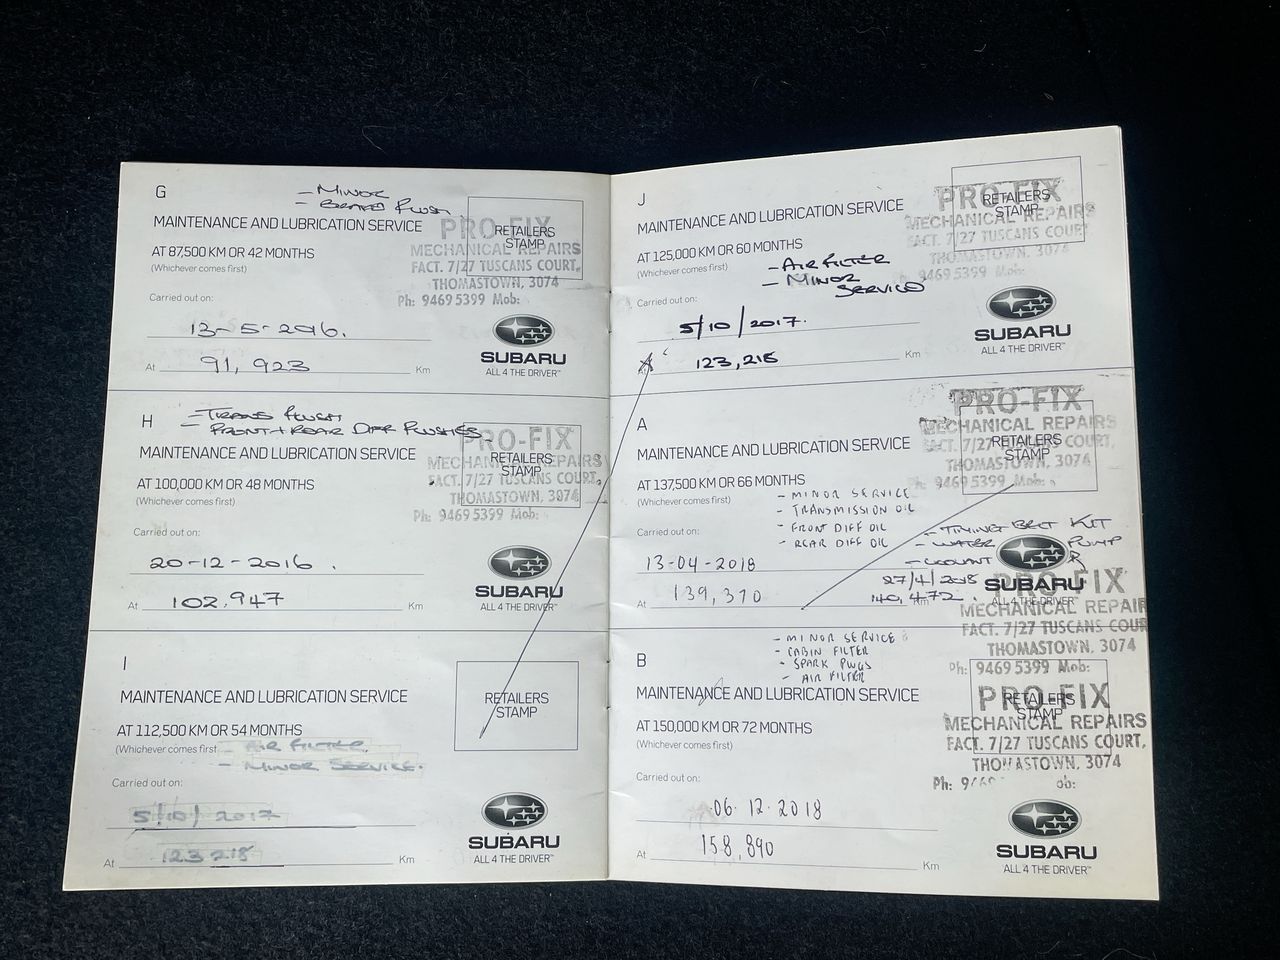 G
- MINOR
- BRAKE FLUSH
MAINTENANCE AND LUBRICATION SERVICE
AT 87,500 KM OR 42 MONTHS
(Whichever comes first)
RETAILERS
STAMP
PRO-FIX
MECHANICAL REPAIRS
FACT. 7/27 TUSCANS COURT,
THOMASTOWN, 3074
Ph: 9469 5399 Mob:
Carried out on:
13-5-2016.
At 91,923 Km
SUBARU
ALL 4 THE DRIVER™
H
- TRANS FLUSH
- FRONT + REAR DIFF FLUSHES
MAINTENANCE AND LUBRICATION SERVICE
AT 100,000 KM OR 48 MONTHS
(Whichever comes first)
RETAILERS
STAMP
PRO-FIX
MECHANICAL REPAIRS
FACT. 7/27 TUSCANS COURT,
THOMASTOWN, 3074
Ph: 9469 5399 Mob:
Carried out on:
20-12-2016.
At 102,947 Km
SUBARU
ALL 4 THE DRIVER™
I
MAINTENANCE AND LUBRICATION SERVICE
AT 112,500 KM OR 54 MONTHS
(Whichever comes first
- AIR FILTER.
- MINOR SERVICE.
RETAILERS
STAMP
Carried out on:
5/10/2017
At 123 218 Km
SUBARU
ALL 4 THE DRIVER™
J
MAINTENANCE AND LUBRICATION SERVICE
AT 125,000 KM OR 60 MONTHS
(Whichever comes first)
- AIR FILTER
- MINOR
SERVICE
RETAILERS
STAMP
PRO-FIX
MECHANICAL REPAIRS
FACT. 7/27 TUSCANS COURT,
THOMASTOWN, 3074
Ph: 9469 5399 Mob:
Carried out on:
5/10/2017.
At 123,218 Km
SUBARU
ALL 4 THE DRIVER™
A
MAINTENANCE AND LUBRICATION SERVICE
AT 137,500 KM OR 66 MONTHS
(Whichever comes first)
- MINOR SERVICE
- TRANSMISSION OIL
- FRONT DIFF OIL
- REAR DIFF OIL
RETAILERS
STAMP
PRO-FIX
MECHANICAL REPAIRS
FACT. 7/27 TUSCANS COURT,
THOMASTOWN, 3074
Ph: 9469 5399 Mob:
Carried out on:
13-04-2018
At 139,370
- TIMING BELT KIT
- WATER PUMP
- COOLANT
27/4/2018
140,472. Km
SUBARU
ALL 4 THE DRIVER™
PRO-FIX
MECHANICAL REPAIR
FACT. 7/27 TUSCANS COUR
THOMASTOWN, 3074
Ph: 9469 5399 Mob:
B
- MINOR SERVICE
- CABIN FILTER
- SPARK PLUGS
- AIR FILTER
MAINTENANCE AND LUBRICATION SERVICE
AT 150,000 KM OR 72 MONTHS
(Whichever comes first)
RETAILERS
STAMP
PRO-FIX
MECHANICAL REPAIRS
FACT. 7/27 TUSCANS COURT,
THOMASTOWN, 3074
Ph:
Carried out on:
06.12.2018
At 158,890 Km
SUBARU
ALL 4 THE DRIVER™